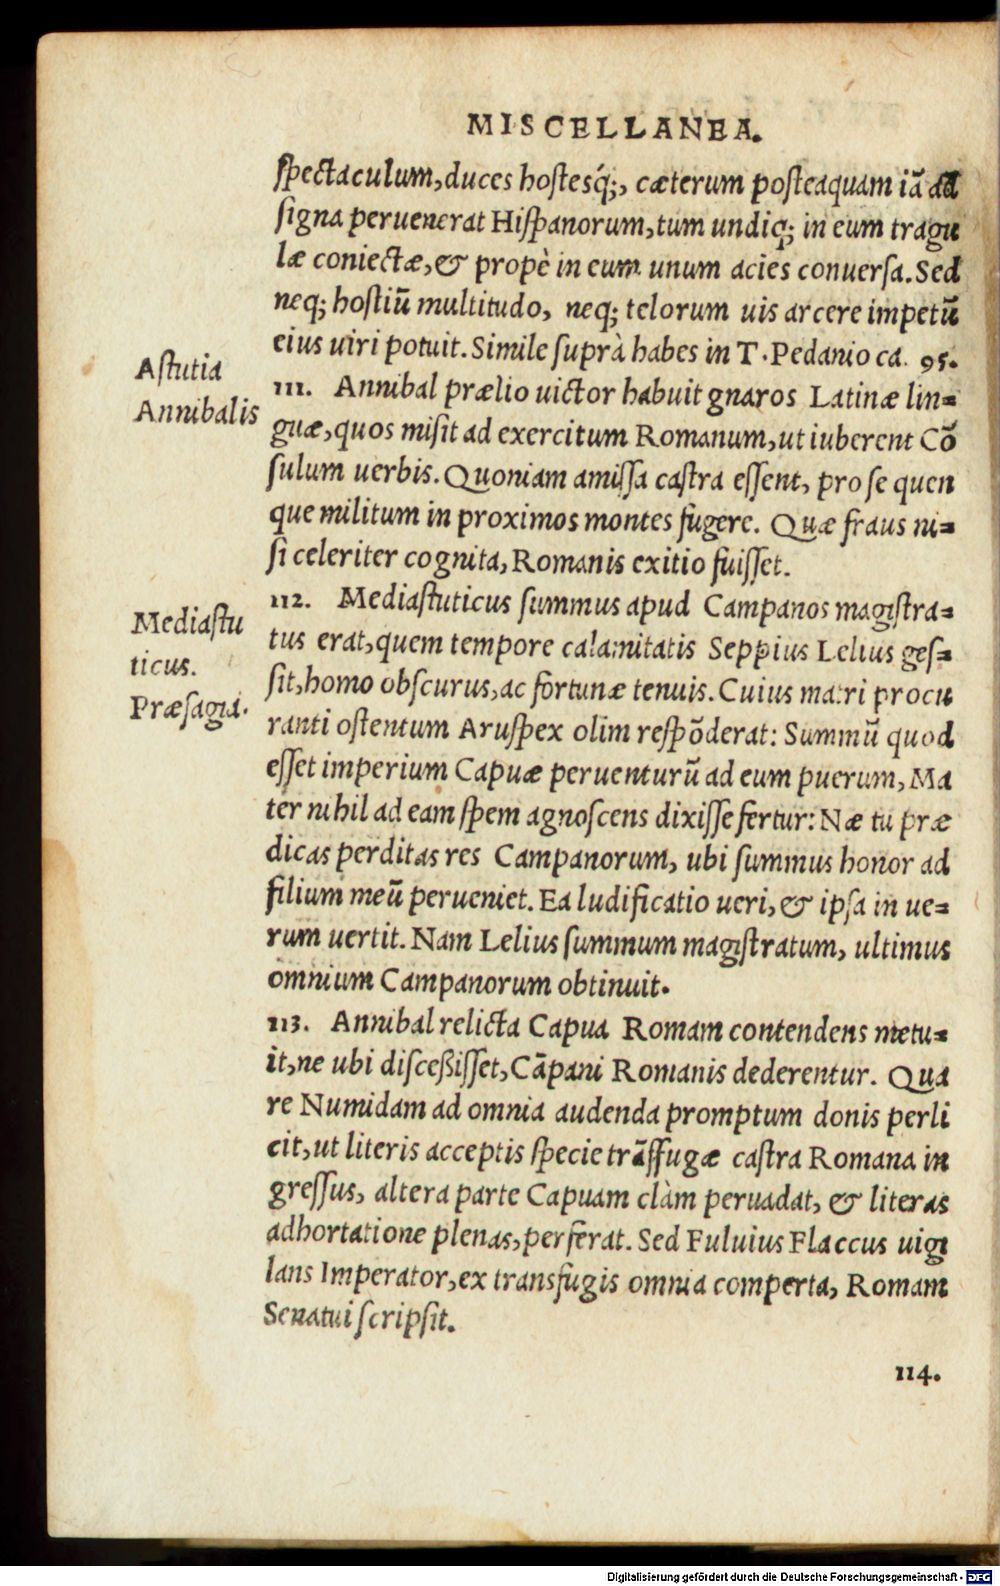 MISCELLANEA.
ſpectaculum, duces hoſtesq́;, cæterum poſteaquam iã ad
ſigna peruenerat Hiſpanorum, tum undiq; in eum tragu
læ coniectæ, & propè in eum unum acies conuerſa. Sed
neq; hoſtiũ multitudo, neq; telorum uis arcere impetũ
eius uiri potuit. Simile ſuprà habes in T. Pedanio ca. 95.
Aſtutia
Annibalis
111. Annibal prælio uictor habuit gnaros Latinæ lin=
guæ, quos miſit ad exercitum Romanum, ut iuberent Cõ
ſulum uerbis. Quoniam amiſſa caſtra eſſent, pro ſe quen
que militum in proximos montes fugere. Quæ fraus ni=
ſi celeriter cognita, Romanis exitio fuiſſet.
Mediaſtu
ticus.
Præſagia.
112. Mediaſtuticus ſummus apud Campanos magiſtra=
tus erat, quem tempore calamitatis Seppius Lelius geſ=
ſit, homo obſcurus, ac fortunæ tenuis. Cuius matri procu
ranti oſtentum Aruſpex olim reſpõderat: Summũ quod
eſſet imperium Capuæ peruenturũ ad eum puerum, Ma
ter nihil ad eam ſpem agnoſcens dixiſſe fertur: Næ tu præ
dicas perditas res Campanorum, ubi ſummus honor ad
filium meũ perueniet. Ea ludificatio ueri, & ipſa in ue=
rum uertit. Nam Lelius ſummum magiſtratum, ultimus
omnium Campanorum obtinuit.
113. Annibal relicta Capua Romam contendens metu=
it, ne ubi diſceßiſſet, Cãpani Romanis dederentur. Qua
re Numidam ad omnia audenda promptum donis perli
cit, ut literis acceptis ſpecie trãſſugæ caſtra Romana in
greſſus, altera parte Capuam clàm peruadat, & literas
adhortatione plenas, perferat. Sed Fuluius Flaccus uigi
lans Imperator, ex transfugis omnia comperta, Romam
Senatui ſcripſit.
114.
Digitalisierung gefördert durch die Deutsche Forschungsgemeinschaft - DFG